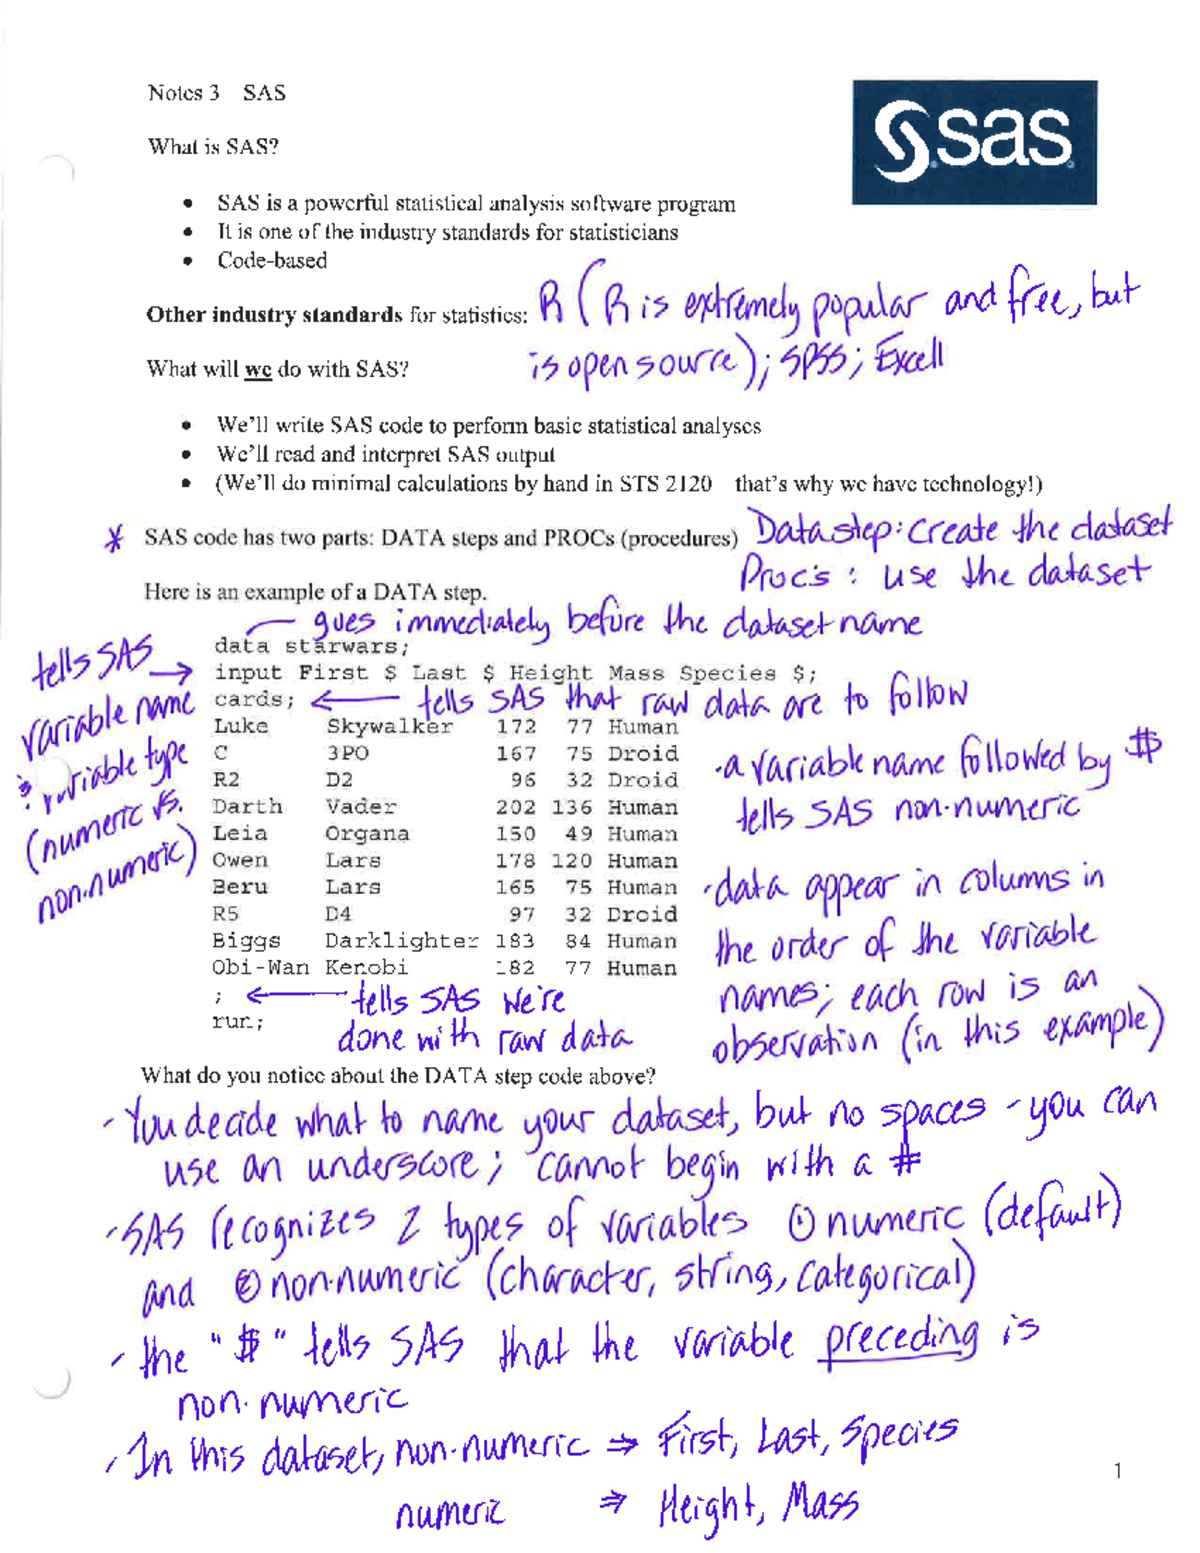 Notes 3 SAS
sas
What is SAS?
• SAS is a powerful statistical analysis software program
• It is one of the industry standards for statisticians
• Code-based
Other industry standards for statistics: R (R is extremely popular and free, but
is open source); SPSS; Excell
What will we do with SAS?
• We'll write SAS code to perform basic statistical analyses
• We'll read and interpret SAS output
• (We'll do minimal calculations by hand in STS 2120 that's why we have technology!)
* SAS code has two parts: DATA steps and PROCs (procedures) Data step: create the dataset
Proc's : use the dataset
Here is an example of a DATA step.
goes immediately before the dataset name
data starwars;
tells SAS → input First $ Last $ Height Mass Species $;
variable name
& variable type
(numeric vs.
non-numeric)
cards; ← tells SAS that raw data are to follow
Luke Skywalker 172 77 Human
C 3PO 167 75 Droid
R2 D2 96 32 Droid
Darth Vader 202 136 Human
Leia Organa 150 49 Human
Owen Lars 178 120 Human
Beru Lars 165 75 Human
R5 D4 97 32 Droid
Biggs Darklighter 183 84 Human
Obi-Wan Kenobi 182 77 Human
; ← tells SAS we're
done with raw data
run;
· a variable name followed by $
tells SAS non-numeric
· data appear in columns in
the order of the variable
names; each row is an
observation (in this example)
What do you notice about the DATA step code above?
- You decide what to name your dataset, but no spaces - you can
use an underscore; cannot begin with a #
- SAS recognizes 2 types of variables ① numeric (default)
and ② non-numeric (character, string, categorical)
- the "$" tells SAS that the variable preceding is
non-numeric
- In this dataset, non-numeric ⇒ First, Last, Species
numeric ⇒ Height, Mass
1